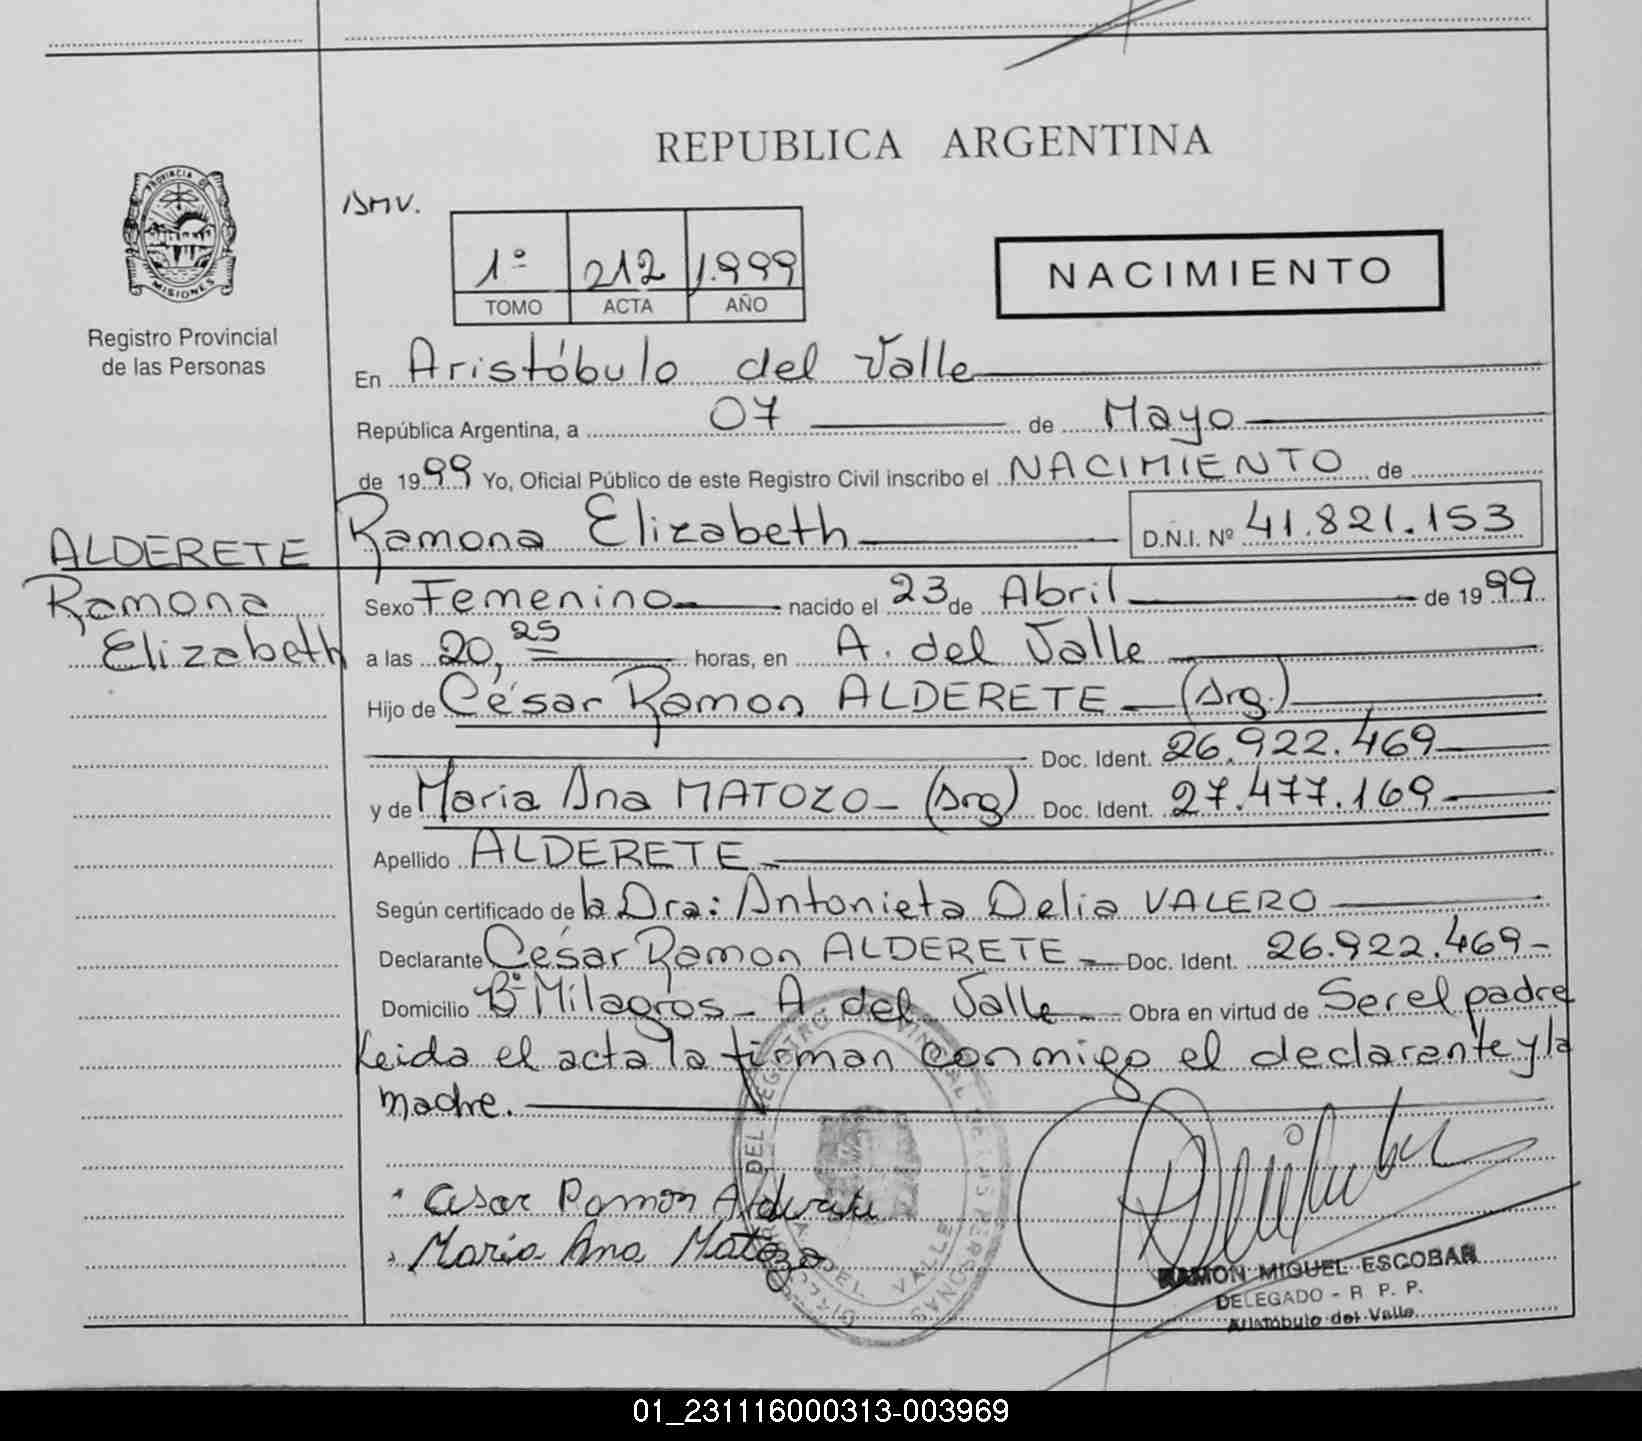 REPUBLICA ARGENTINA
PROVINCIA DE
MISIONES
Registro Provincial
de las Personas
1º 212 1.999
TOMO ACTA AÑO
NACIMIENTO
En Aristóbulo del Valle
República Argentina, a 07 de Mayo
de 1999 Yo, Oficial Público de este Registro Civil inscribo el NACIMIENTO de
Ramona Elizabeth D.N.I. Nº 41.821.153
ALDERETE
Ramona
Elizabeth
Sexo Femenino nacido el 23 de Abril de 1999
a las 20,25 horas, en A. del Valle
Hijo de César Ramon ALDERETE (Arg.)
Doc. Ident. 26.922.469
y de Maria Ana MATOZO (Arg) Doc. Ident. 27.477.169
Apellido ALDERETE
Según certificado de la Dra: Antonieta Delia VALERO
Declarante César Ramon ALDERETE Doc. Ident. 26.922.469
Domicilio Bº Milagros - A. del Valle Obra en virtud de Ser el padre
Leida el acta la firman conmigo el declarante y la
madre.
Cesar Ramon Alderete
Maria Ana Matozo
RAMON MIGUEL ESCOBAR
DELEGADO - R. P. P.
Aristóbulo del Valle
01_231116000313-003969